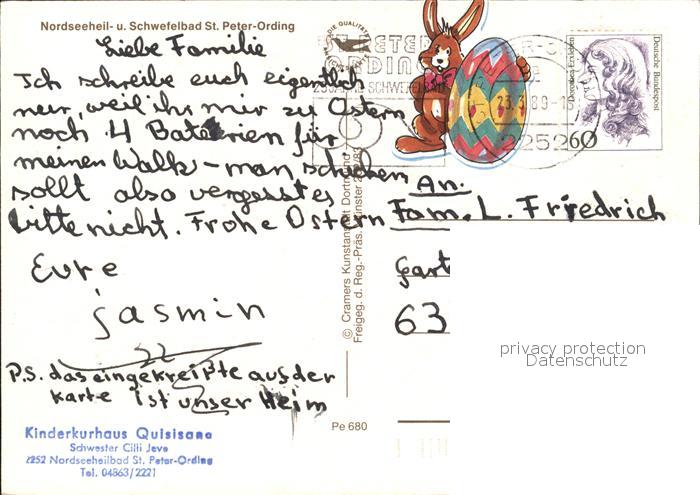 Nordseeheil- u. Schwefelbad St. Peter-Ording
Liebe Familie
Ich schreibe euch eigentlich
nur, weil ihr mir zu Ostern
noch 4 Baterien für
meinen Walk-man schicken
sollt also vergesst es
bitte nicht. Frohe Ostern
Eure
Jasmin
P.S. das eingekreißte auf der
Karte ist unser Heim
Kinderkurhaus Quisisana
Schwester Cilli Jeve
2252 Nordseeheilbad St. Peter-Ording
Tel. 04863/2221
© Cramers Kunstanstalt Dortmund
Freigeg. d. Reg.-Präs. Münster
Pe 680
23.3.89-1
2252
60
Deutsche Bundespost
Dorothea Erxleben
An.
Fam. L. Friedrich
Gart
63
privacy protection
Datenschutz